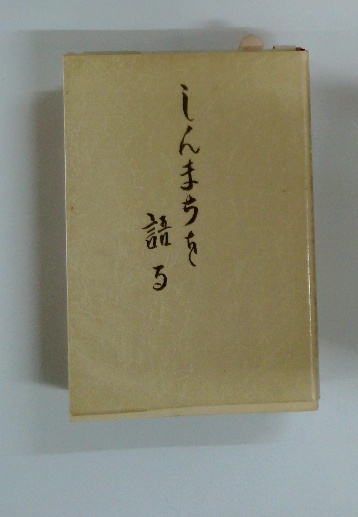 しんまちを
語る